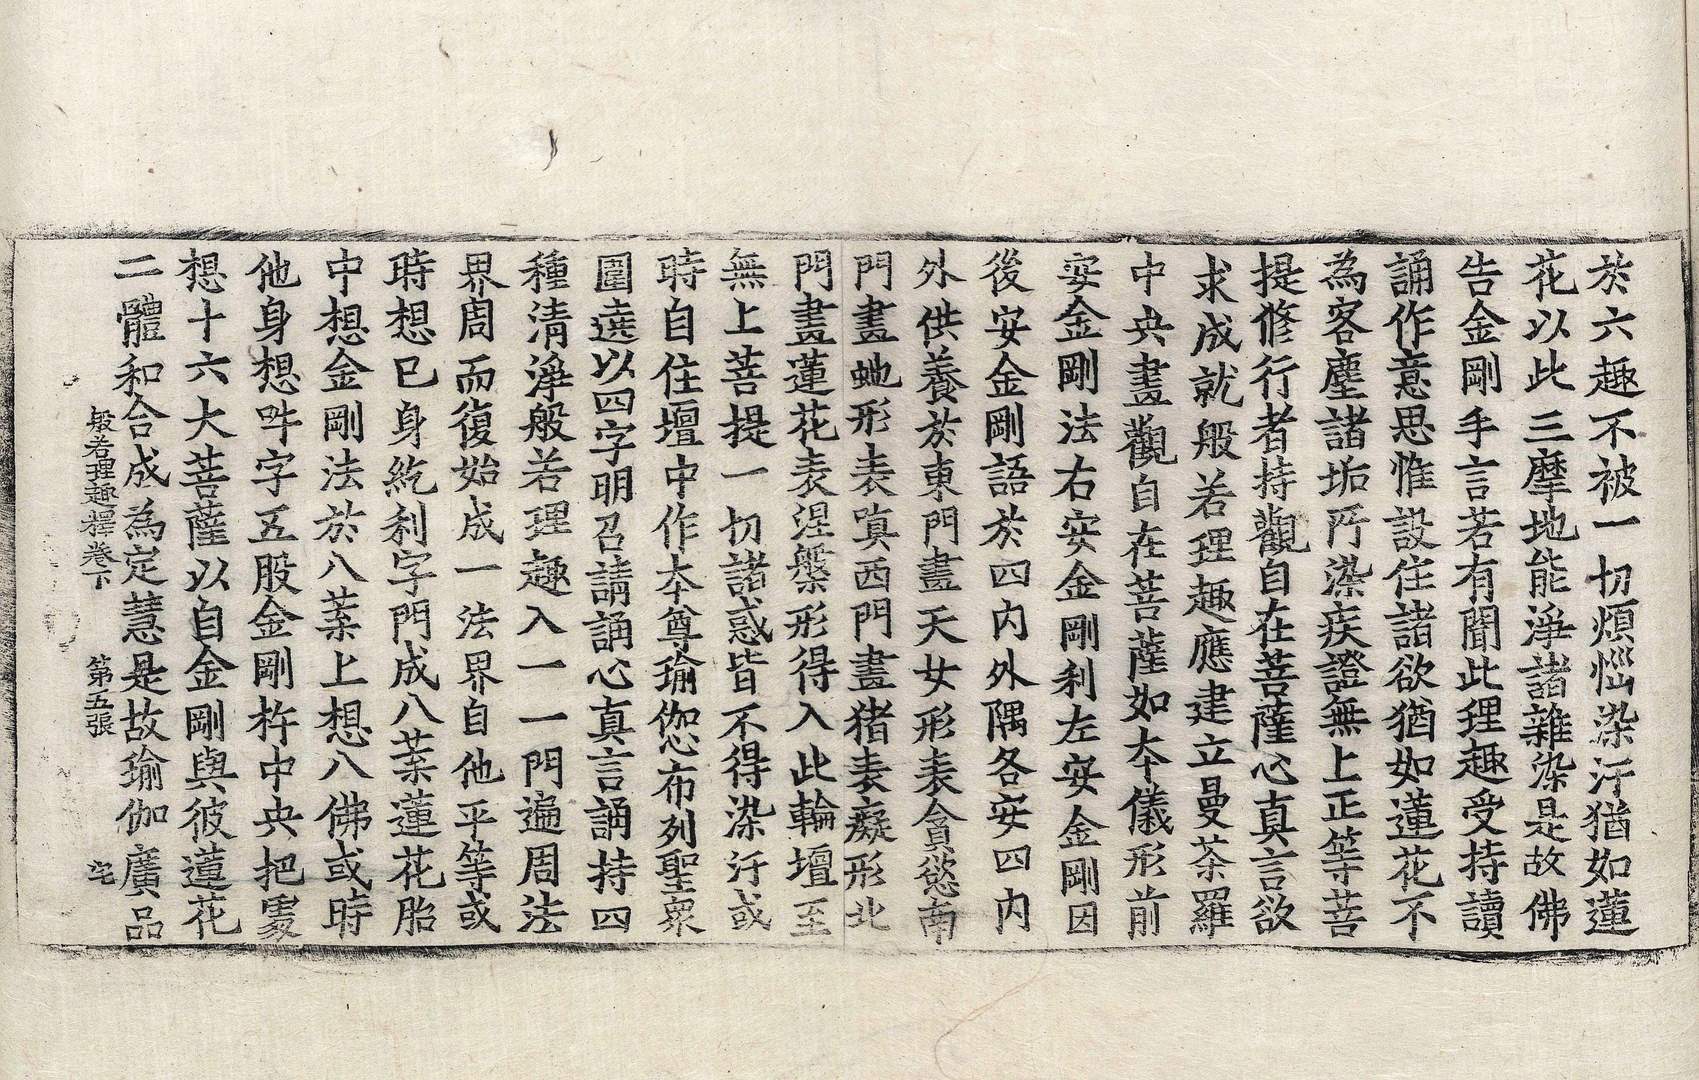 於六趣不被一切煩惱染汙猶如蓮
花以此三摩地能淨諸雜染是故佛
告金剛手言若有聞此理趣受持讀
誦作意思惟設住諸欲猶如蓮花不
為客塵諸垢所染疾證無上正等菩
提修行者持觀自在菩薩心真言欲
求成就般若理趣應建立曼荼羅
中央畫觀自在菩薩如本儀形前
安金剛法右安金剛利左安金剛因
後安金剛語於四內外隅各安四內
外供養於東門畫天女形表貪慾南
門畫虵形表嗔西門畫猪表癡形北
門畫蓮花表涅槃形得入此輪壇至
無上菩提一切諸惑皆不得染汙或
時自住壇中作本尊瑜伽心布列聖衆
圍遶以四字明召請誦心真言誦持四
種清淨般若理趣入一一門遍周法
界周而復始成一法界自他平等或
時想已身紇利字門成八葉蓮花胎
中想金剛法於八葉上想八佛或時
他身想吽字五股金剛杵中央把處
想十六大菩薩以自金剛與彼蓮花
二體和合成為定慧是故瑜伽廣品
般若理趣釋卷下 第五張 宅